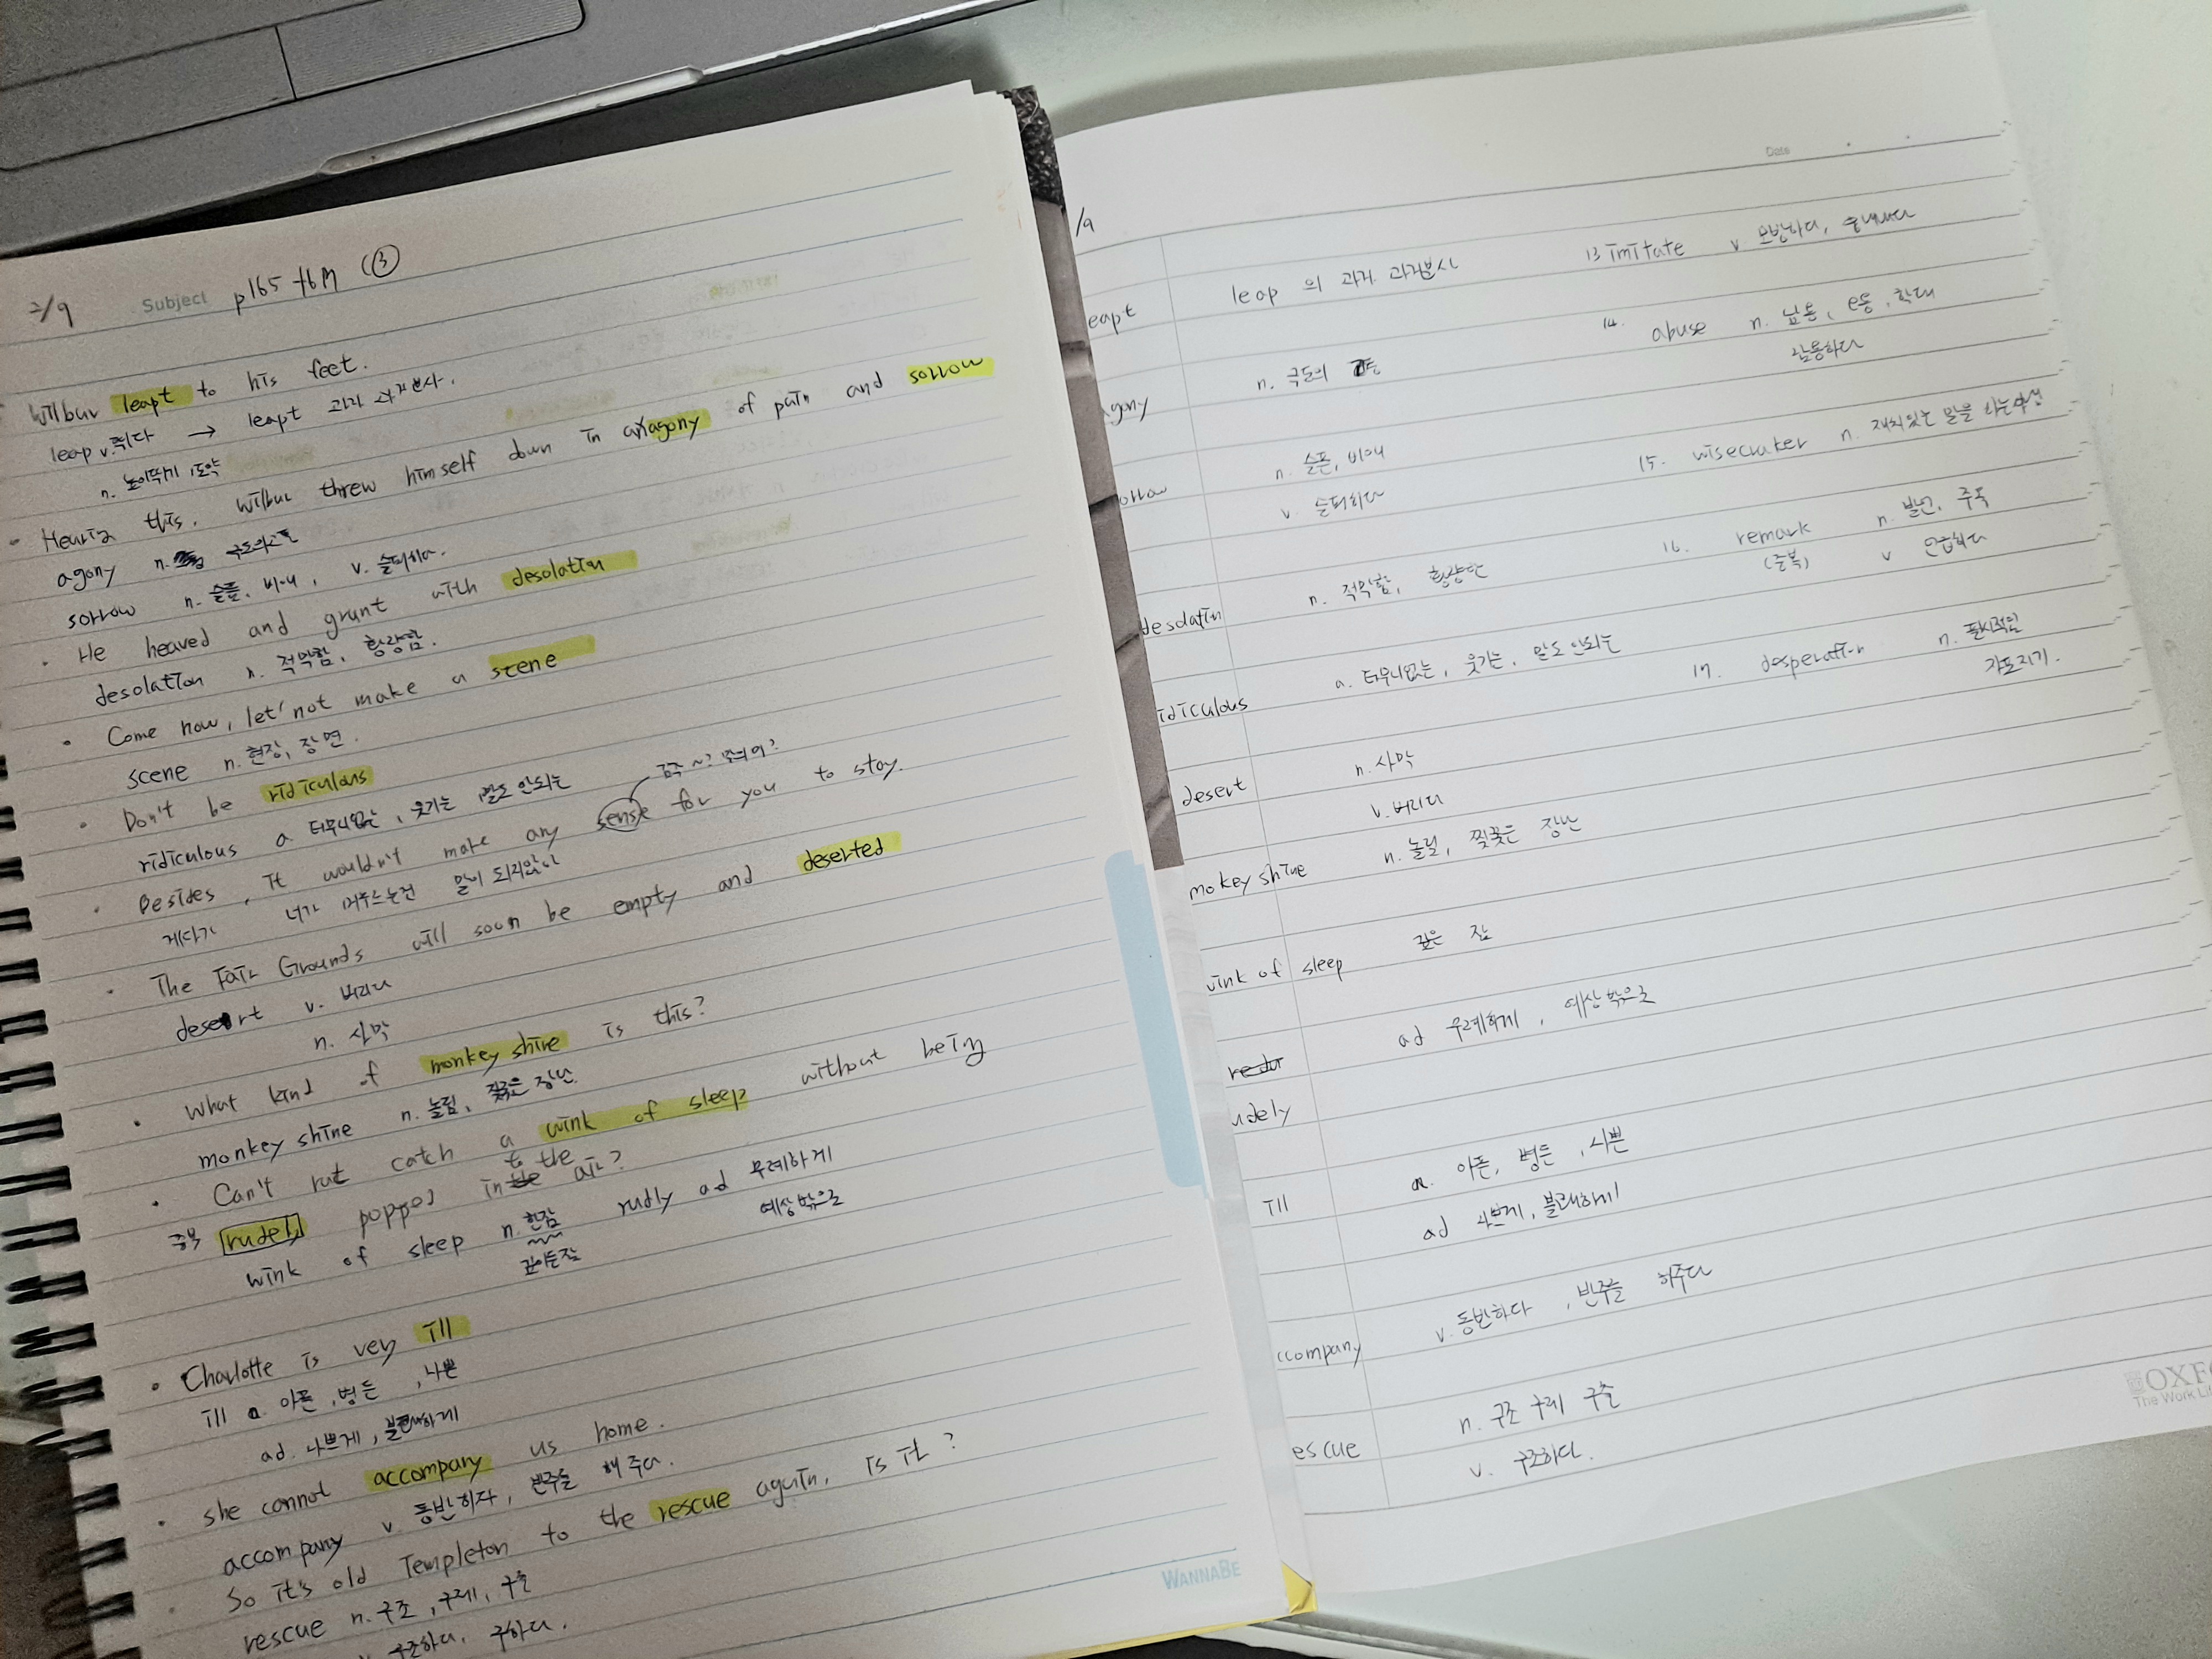 2/9 Subject p165 (3)
Wilbur leapt to his feet.
leap v. 뛰다 → leapt 과거 과거분사.
n. 높이뛰기 도약
· Hearing this, Wilbur threw himself down in an agony of pain and sorrow
agony n. 극도의 고통
sorrow n. 슬픔, 비애, v. 슬퍼하다.
· He heaved and grunt with desolation
desolation n. 적막함, 황량함.
· Come now, let's not make a scene
scene n. 현장, 장면.
· Don't be ridiculous
ridiculous a. 터무니없는, 웃기는, 말도 안되는
· Besides, it wouldn't make any sense for you to stay.
게다가 너가 머무르는건 말이 되지않아
· The Fair Grounds will soon be empty and deserted
desert v. 버리다
n. 사막
· What kind of monkeyshine is this?
monkeyshine n. 놀림, 짖궂은 장난.
· Can't rat catch a wink of sleep without being
rudely popped into the air?
wink of sleep n. 한잠 rudly ad 무례하게
깊이든잠 예상밖으로
· Charlotte is very ill
ill a. 아픈, 병든, 나쁜
ad. 나쁘게, 불쾌하게
· she cannot accompany us home.
accompany v. 동반하다, 반주를 해주다.
· So it's old Templeton to the rescue again, is it?
rescue n. 구조, 구제, 구출
구조하다, 구하다.
WANNABE
Date
/9
eapt leap 의 과거 과거분사
gony n. 극도의 고통
orrow n. 슬픔, 비애
v. 슬퍼하다
desolatin n. 적막함, 황량한
idiculous a. 터무니없는, 웃기는, 말도 안되는
desert n. 사막
v. 버리다
mokeyshine n. 놀림, 짖궂은 장난
wink of sleep 깊은 잠
udely ad 무례하게, 예상밖으로
ill a. 아픈, 병든, 나쁜
ad 나쁘게, 불쾌하게
ccompany v. 동반하다, 반주를 해주다
escue n. 구조 구제 구출
v. 구조하다.
13 imitate v 모방하다, 흉내내다
14. abuse n. 남용, 오용, 학대
남용하다
15. wisecraker n. 재치있는 말을 하는사람
16. remark n. 발언, 주목
(중복) v 언급하다
17. desperatin n. 필사적임
자포자기.
OXFO
The Work Li